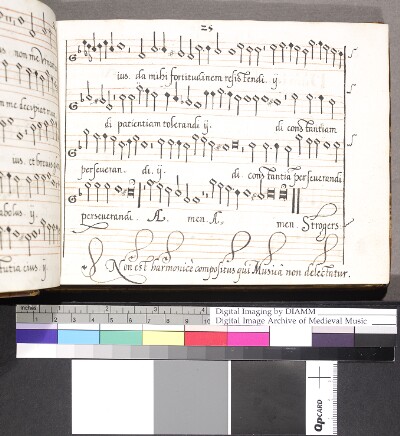 25
ius. da mihi fortitudinem resistendi. ij.
di patientiam tolerandi ij. di constantiam
perseueran. di. ij. di constantia perseuerandi
perseuerandi. Æ. men. A, men. Strogers
Non est harmonicè compositus qui Musica non delectatur.
ius non me
n me decipiat
us. et
abolus. ij.
tutia eius. ij.
inches
1 2 3 4
1 2 3 4 5 6 7 8 9 10
Digital Imaging by DIAMM
Digital Image Archive of Medieval Music
OpCARD